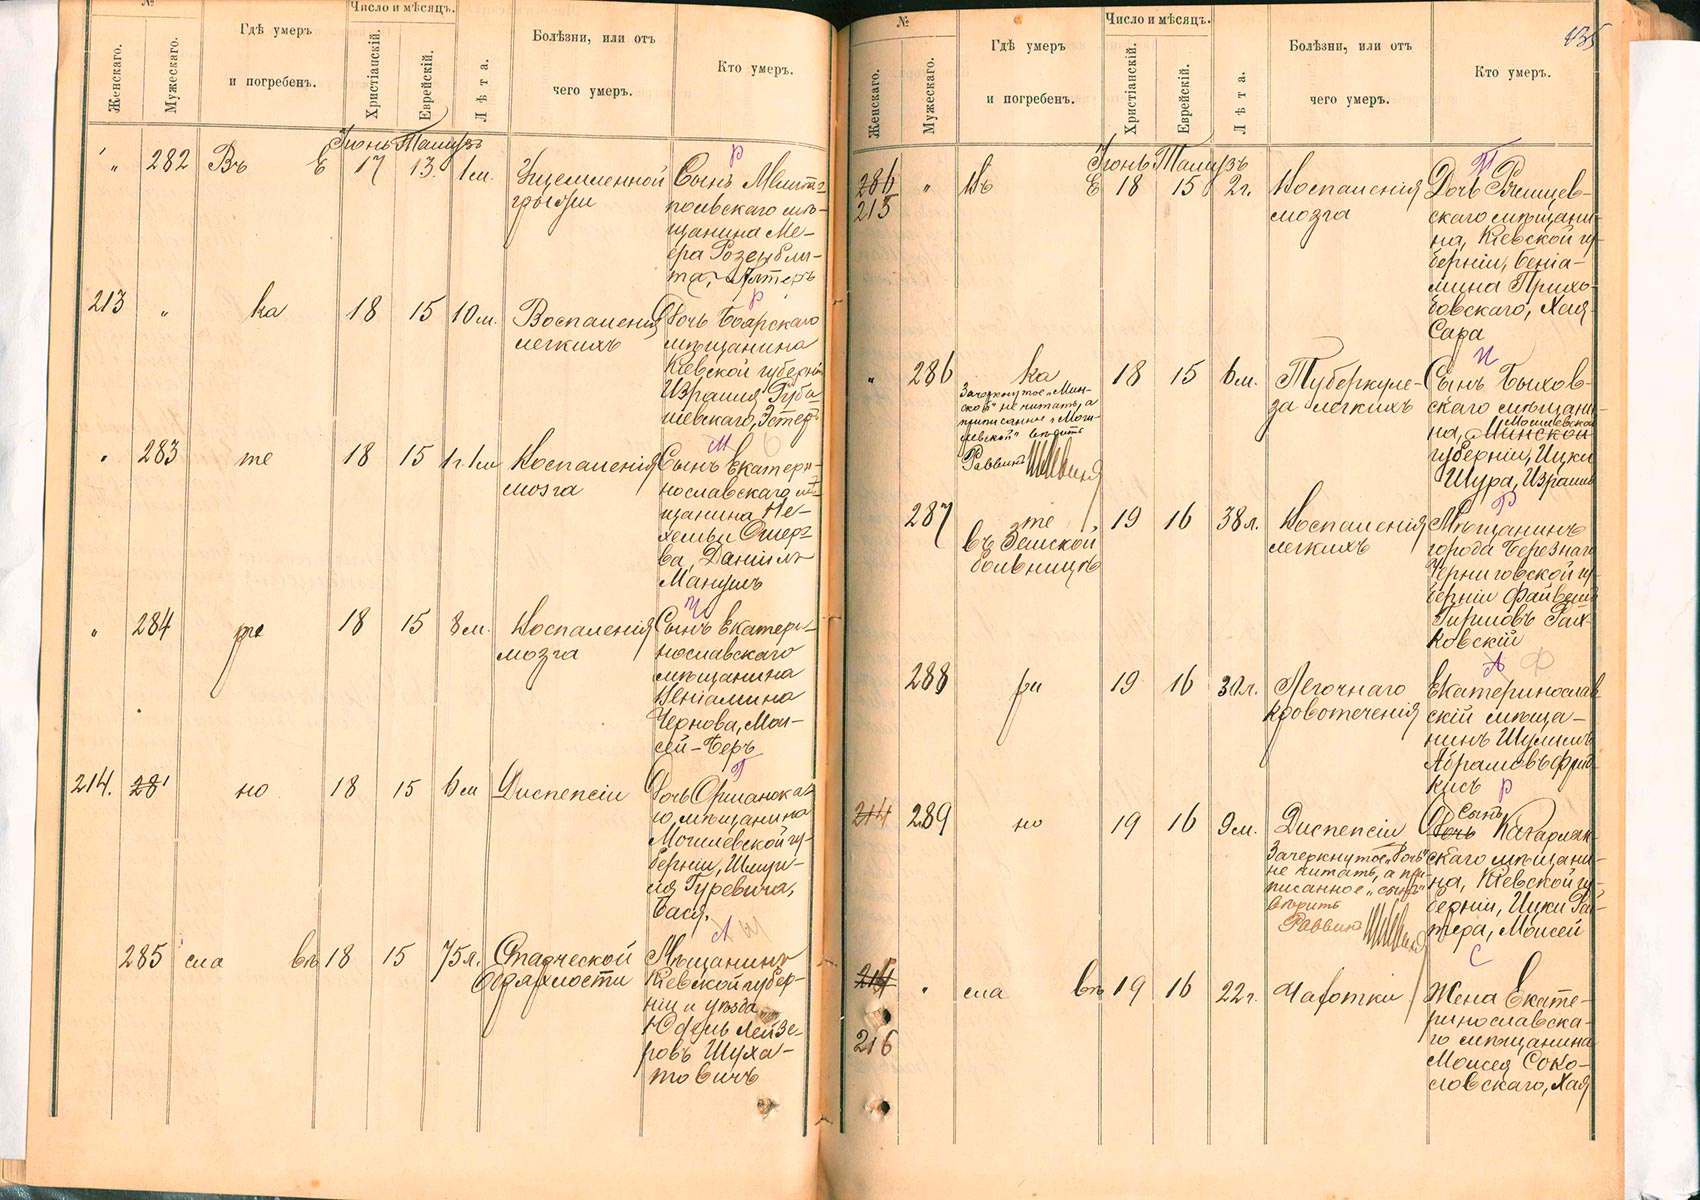 №
Число и мѣсяцъ.
Женскаго.
Мужескаго.
Гдѣ умеръ
и погребенъ.
Христіанскій.
Еврейскій.
Лѣта.
Болѣзни, или отъ
чего умеръ.
Кто умеръ.
Іюнь Тамузъ
" 282 Въ Е 17 13 1 м.
Ущемленной
грыжи
Р
Сынъ Мелито-
польскаго мѣ-
щанина Ме-
ера Розенбли-
та, Алтеръ
213 " ка 18 15 10 м.
Воспаленія
легкихъ
Р
Дочь Боярскаго
мѣщанина
Кіевской губерніи
Израиля Губа-
шевскаго, Эстеръ
" 283 те 18 15 1 г. 1 м
Воспаленія
мозга
М
Сынъ Екатери-
нославскаго мѣ-
щанина Не-
хемьи Ошеро-
ва, Даніилъ
Мануилъ
" 284 ри 18 15 8 м.
Воспаленія
мозга
Ч
Сынъ Екатери-
нославскаго
мѣщанина
Веніамина
Чернова, Мои-
сей-Беръ
214. 281 но 18 15 6 м
Диспепсіи
Г
Дочь Оршанска-
го мѣщанина
Могилевской гу-
берніи, Шмуи-
ла Гуревича,
Бася.
285 сла вѣ 18 15 75 л.
Старческой
дряхлости
Л Ш
Мѣщанинъ
Кіевской губер-
ніи и уѣзда
Юдель Лейзе-
ровъ Шуха-
товичъ
135
№
Число и мѣсяцъ.
Женскаго.
Мужескаго.
Гдѣ умеръ
и погребенъ.
Христіанскій.
Еврейскій.
Лѣта.
Болѣзни, или отъ
чего умеръ.
Кто умеръ.
Іюнь Тамузъ
286 " Въ Е 18 15 2 г.
215
Воспаленія
мозга
П
Дочь Ржищев-
скаго мѣщани-
на, Кіевской гу-
берніи, Веніа-
мина Прихо-
бовскаго, Хая-
Сара
" 286 ка 18 15 6 м.
Зачеркнутое „Мин-
ской" не читать, а
приписанное „Моги-
левской" вѣрить
Раввинъ
Туберкуле-
за легкихъ
И
Сынъ Быхов-
скаго мѣщани-
Могилевской
на, Минской
губерніи, Ицки
Шура, Израиль
287 те 19 16 38 л.
въ Земской
больницѣ
Воспаленія
легкихъ
Р
Мѣщанинъ
города Березнаго
Черниговской гу-
берніи Файвель
ковскій
288 ри 19 16 30 л.
Легочнаго
кровотеченія
А Ф
Екатеринослав
скій мѣща-
нинъ Шулимъ
Абрамовъ Фри-
кисъ
214 289 но 19 16 9 м.
Диспепсіи
Зачеркнутое „дочь"
не читать, а при-
писанное „сынъ"
вѣрить
Раввинъ
Р
Сынъ
Дочь Кагарлык-
скаго мѣщани-
на, Кіевской гу-
берніи, Ицки Рай-
тера, Моисей
" сла вѣ 19 16 22 г.
216
Чахотки
С
Жена Екате-
ринославска-
го мѣщанина
Моисея Соко-
ловскаго, Хая